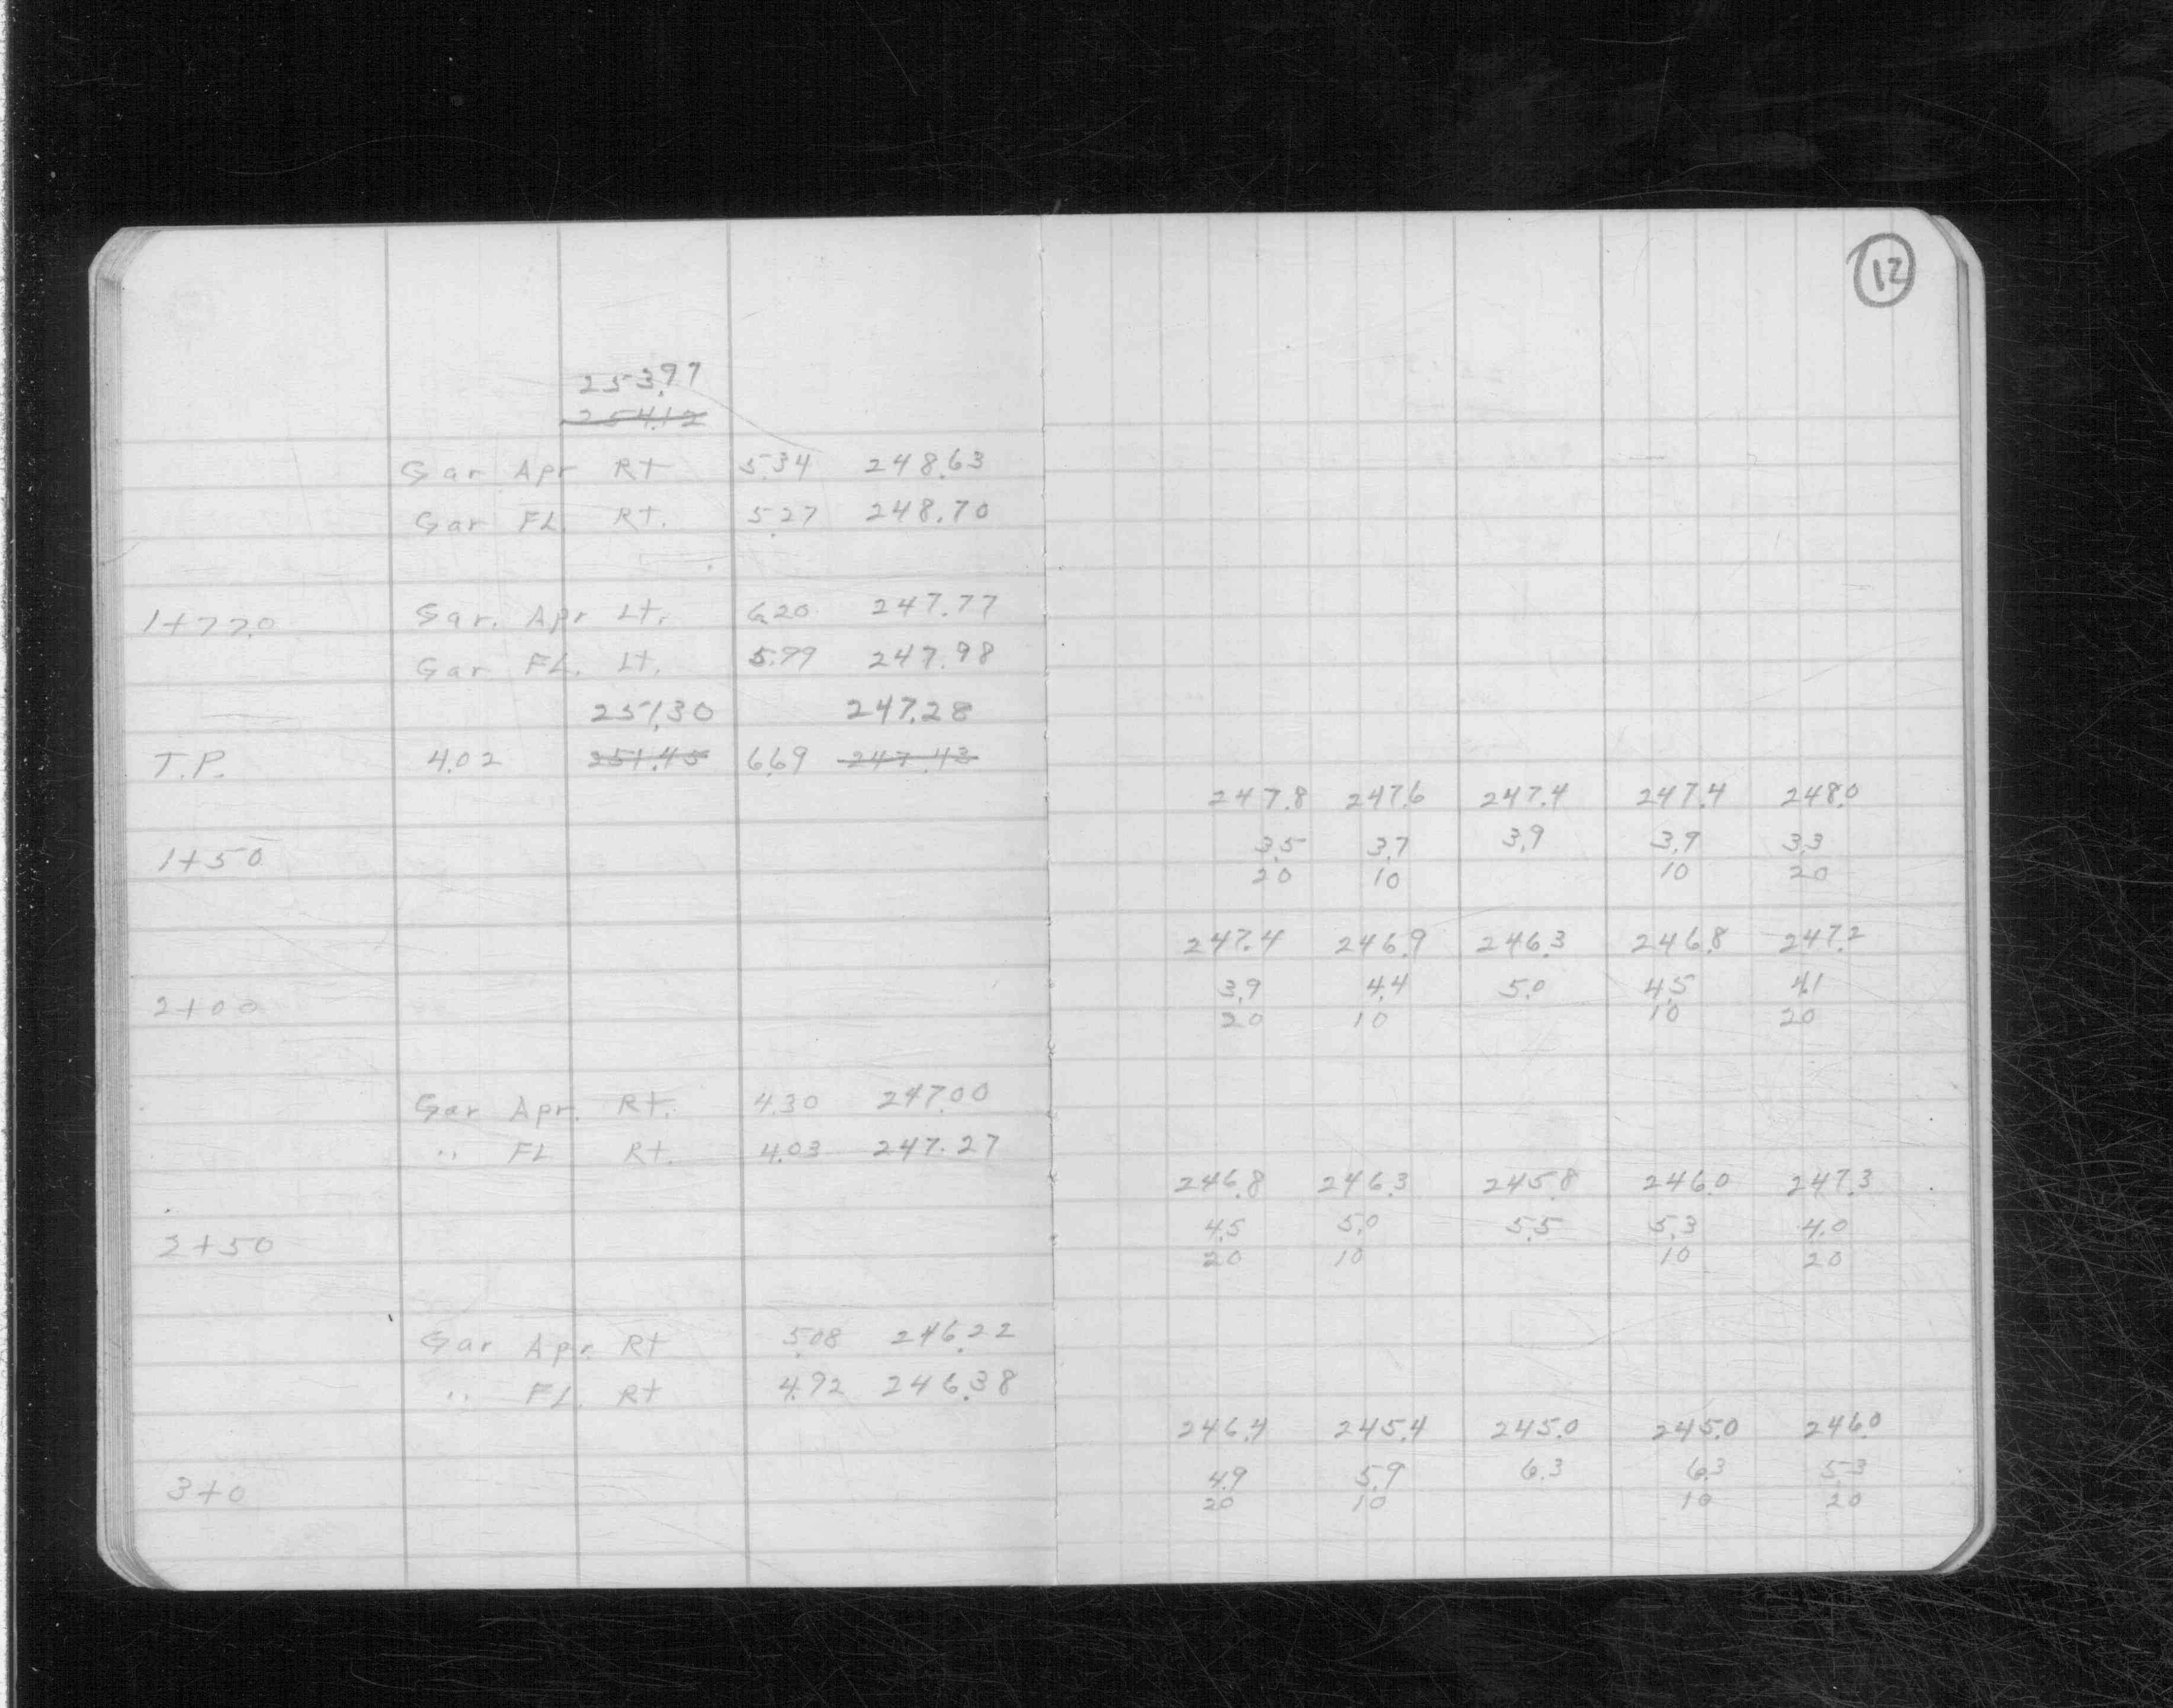 12
253.97
254.12
Gar Apr Rt 5.34 248.63
Gar FL. Rt. 5.27 248.70
1+77.0 Gar. Apr Lt. 6.20 247.77
Gar FL. Lt. 5.99 247.98
251.30 247.28
T.P. 4.02 251.45 6.69 247.43
247.8 247.6 247.4 247.4 248.0
1+50 3.5 3.7 3.9 3.9 3.3
20 10 10 20
247.4 246.9 246.3 246.8 247.2
2+00 3.9 4.4 5.0 4.5 4.1
20 10 10 20
Gar Apr. Rt. 4.30 247.00
" FL Rt. 4.03 247.27
246.8 246.3 245.8 246.0 247.3
2+50 4.5 5.0 5.5 5.3 4.0
20 10 10 20
Gar Apr. Rt 5.08 246.22
" FL. Rt 4.92 246.38
246.4 245.4 245.0 245.0 246.0
3+0 4.9 5.9 6.3 6.3 5.3
20 10 10 20